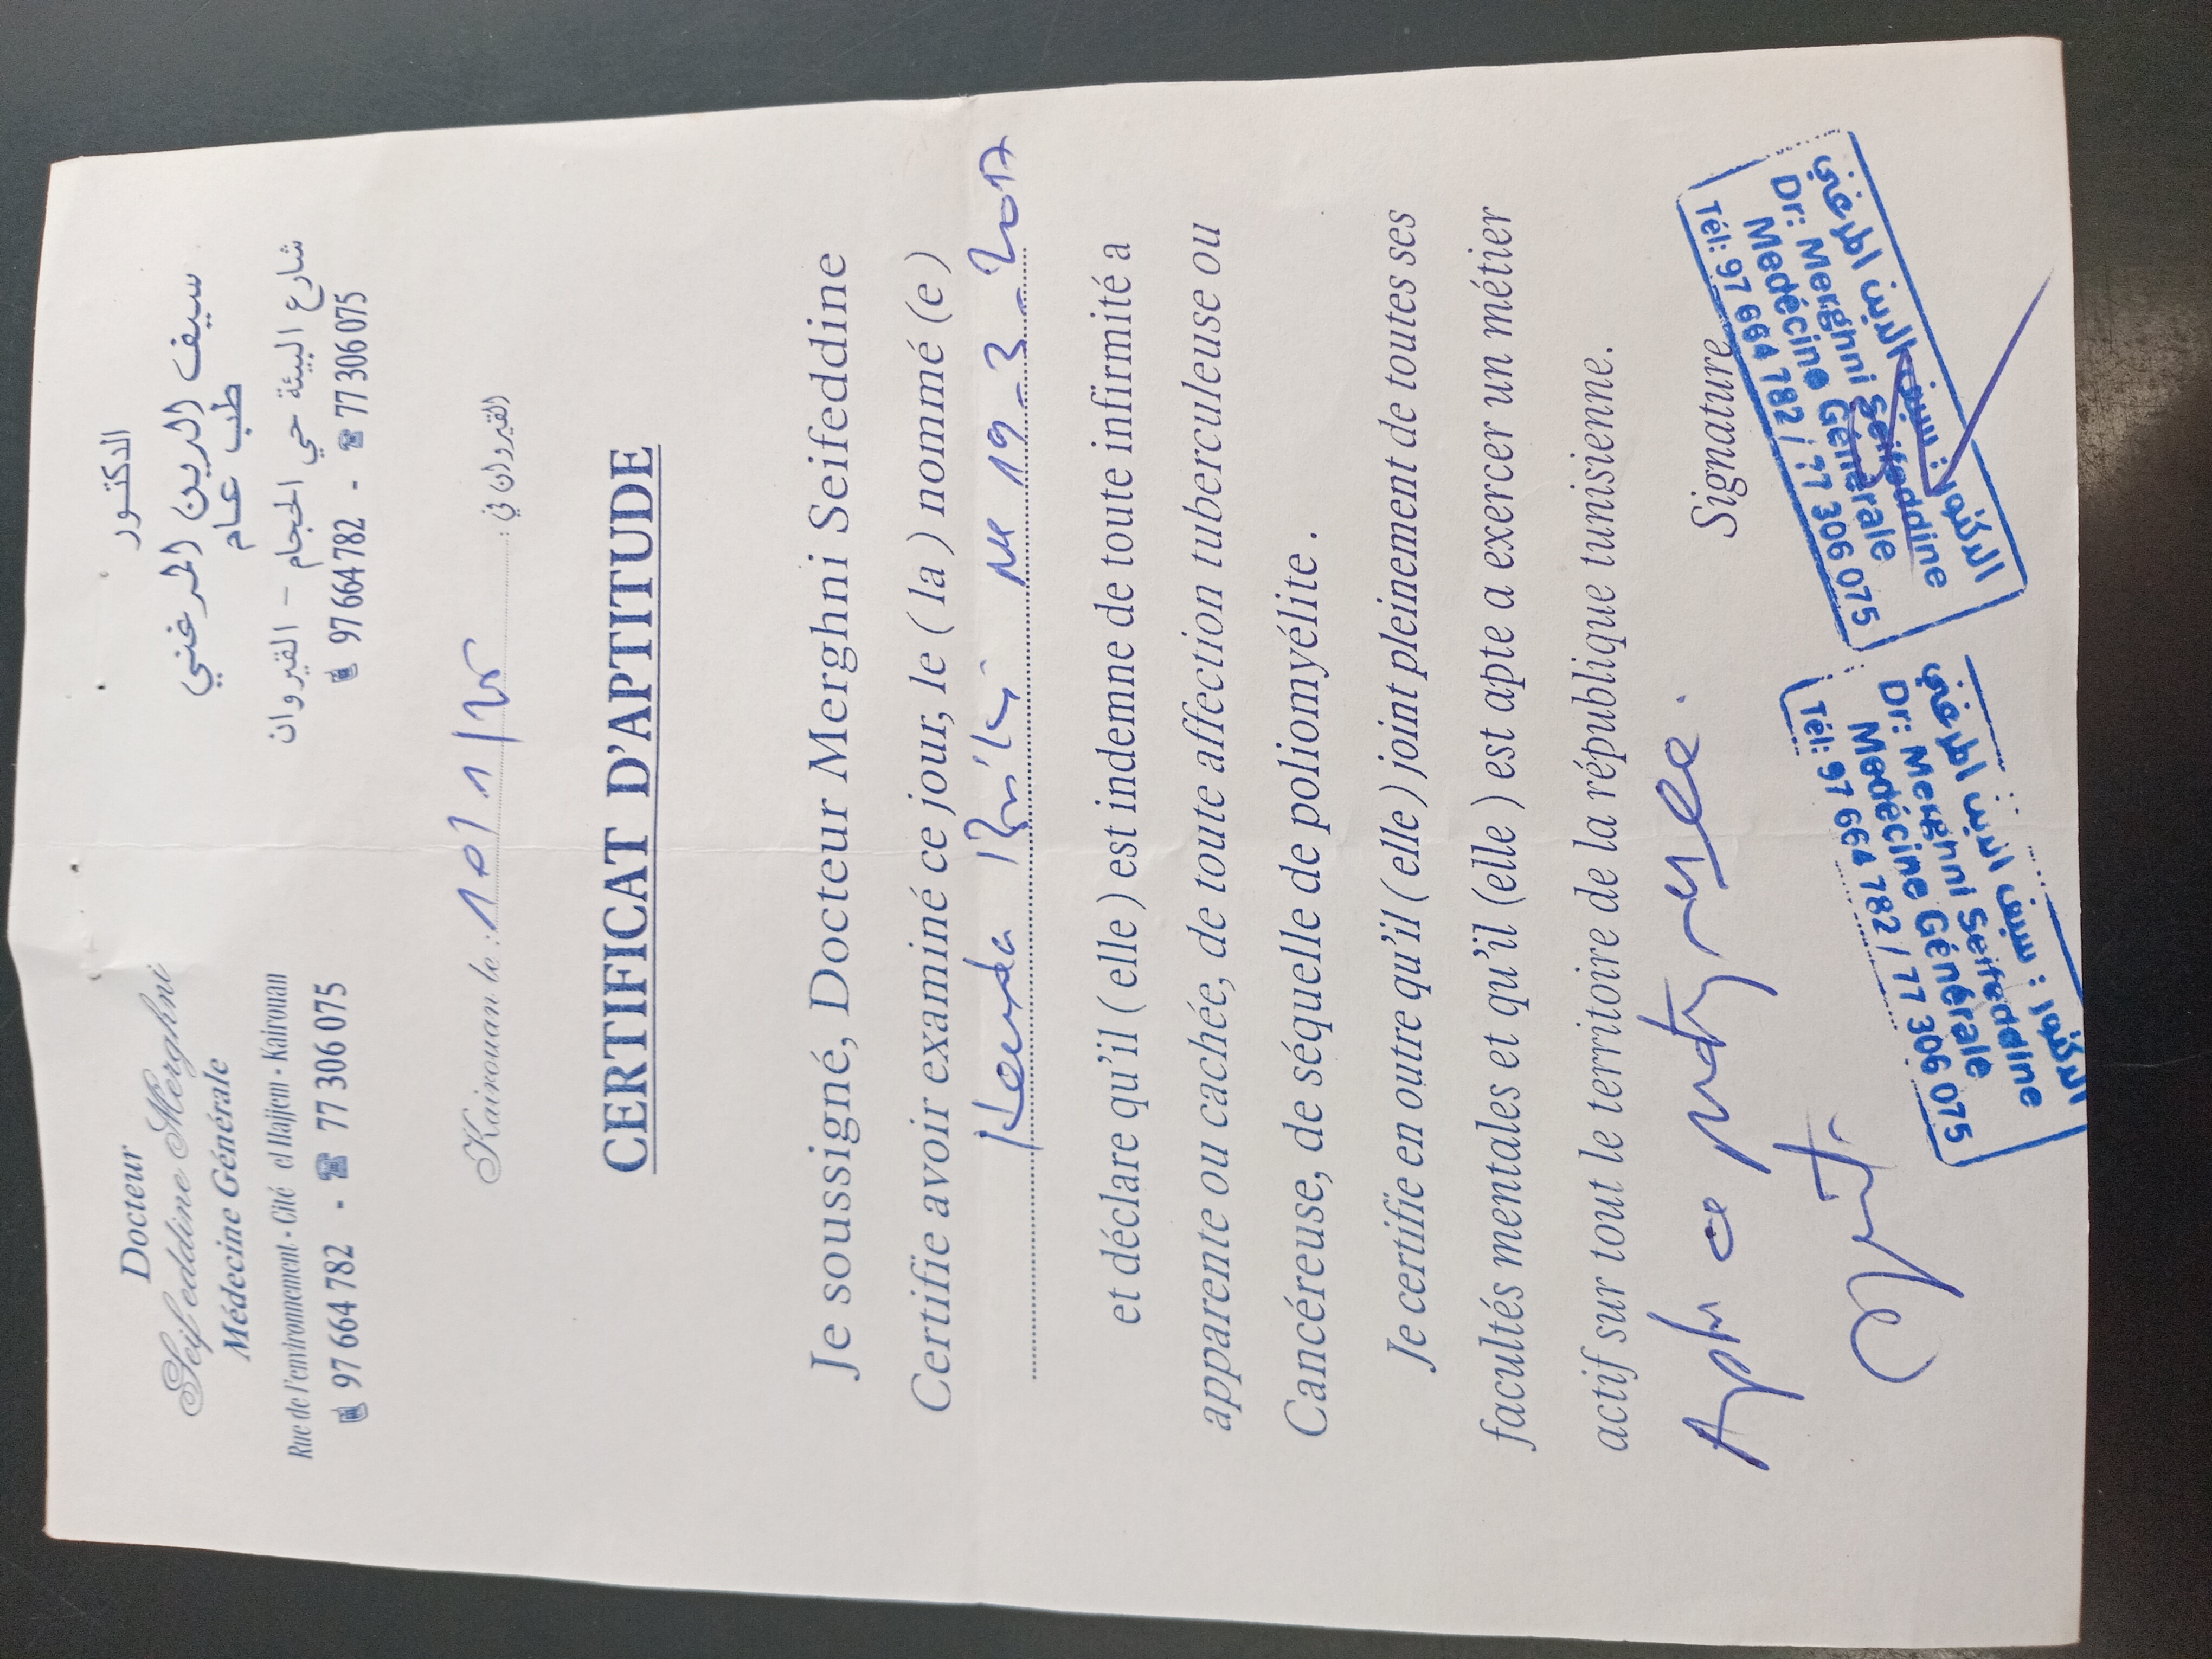 Docteur
Seif eddine Merghni
Médecine Générale
Rue de l'environnement - Cité el Hajjem - Kairouan
97 664 782 - 77 306 075
الدكتور
سيف الدين المرغني
طب عام
شارع البيئة حي الحجام - القيروان
97 664 782 - 77 306 075
Kairouan le : 10/11/25 : القيروان في
CERTIFICAT D'APTITUDE
Je soussigné, Docteur Merghni Seifeddine
Certifie avoir examiné ce jour, le ( la ) nommé (e)
19-3-2017
et déclare qu'il ( elle ) est indemne de toute infirmité a
apparente ou cachée, de toute affection tuberculeuse ou
Cancéreuse, de séquelle de poliomyélite .
Je certifie en outre qu'il ( elle ) joint pleinement de toutes ses
facultés mentales et qu'il (elle ) est apte a exercer un métier
actif sur tout le territoire de la république tunisienne.
Signature
الدكتور : سيف الدين المرغني
Dr: Merghni Seifeddine
Medécine Générale
Tél: 97 664 782 / 77 306 075
الدكتور : سيف الدين المرغني
Dr: Merghni Seifeddine
Medécine Générale
Tél: 97 664 782 / 77 306 075